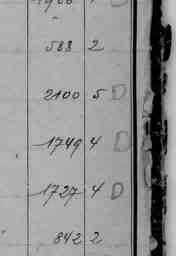 588 2
2100 5 D
1749 4 D
1727 4 D
842 2